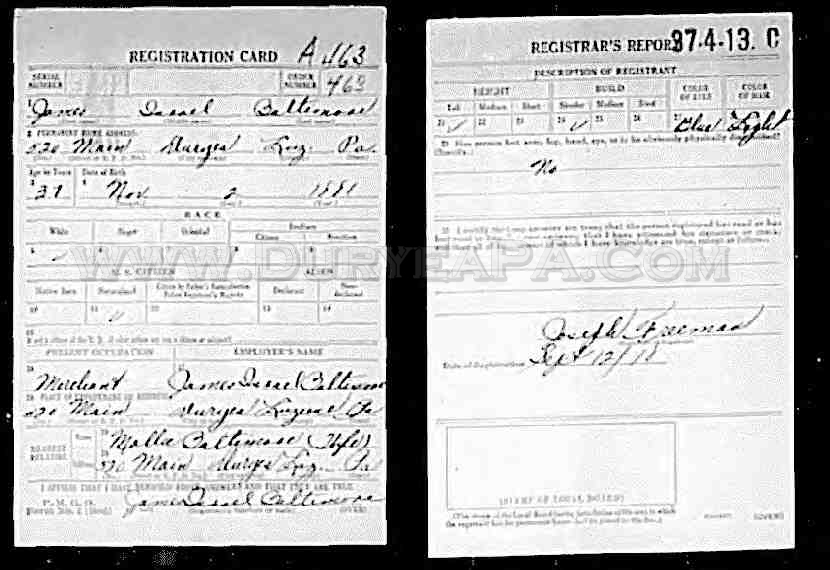 REGISTRATION CARD A 463
SERIAL NUMBER ORDER NUMBER 463
1 James Israel Baltimore
2 PERMANENT HOME ADDRESS:
Main Duryea Luz. Pa.
Age in Years Date of Birth
37 Nov 2 1881
RACE
White Negro Oriental Indian
Citizen
U. S. CITIZEN ALIEN
Native Born Naturalized Citizen by Father's Naturalization Before Registrant's Majority Declarant Non-declarant
10 11 12 13 14
15
If not a citizen of the U. S., of what nation are you a citizen or subject?
PRESENT OCCUPATION EMPLOYER'S NAME
Merchant James Israel Baltimore
PLACE OF EMPLOYMENT OR BUSINESS
Main Duryea Luzerne Pa
NEAREST RELATIVE Name Baltimore (Wife)
Address Main Duryea Luz. Pa
I AFFIRM THAT I HAVE VERIFIED ABOVE ANSWERS AND THAT THEY ARE TRUE
P. M. G. O.
Form No. 1 (Red) James Israel Baltimore
(OVER)
REGISTRAR'S REPORT 37-4-13. C
DESCRIPTION OF REGISTRANT
HEIGHT BUILD COLOR OF EYES COLOR OF HAIR
Tall Medium Short Slender Medium Stout
21 22 23 24 25 26 27 Blue Light
29 Has person lost arm, leg, hand, eye, or is he obviously physically disqualified?
(Specify.)
No
30 I certify that my answers are true; that the person registered has read or has
had read to him his own answers; that I have witnessed his signature or mark,
and that all of his answers of which I have knowledge are true, except as follows:
WWW.DURYEAPA.COM
Joseph Freeman
Date of Registration Sept 12/18
(STAMP OF LOCAL BOARD)
(The stamp of the Local Board having jurisdiction of the area in which
the registrant has his permanent home shall be placed in this box.)
(OVER)